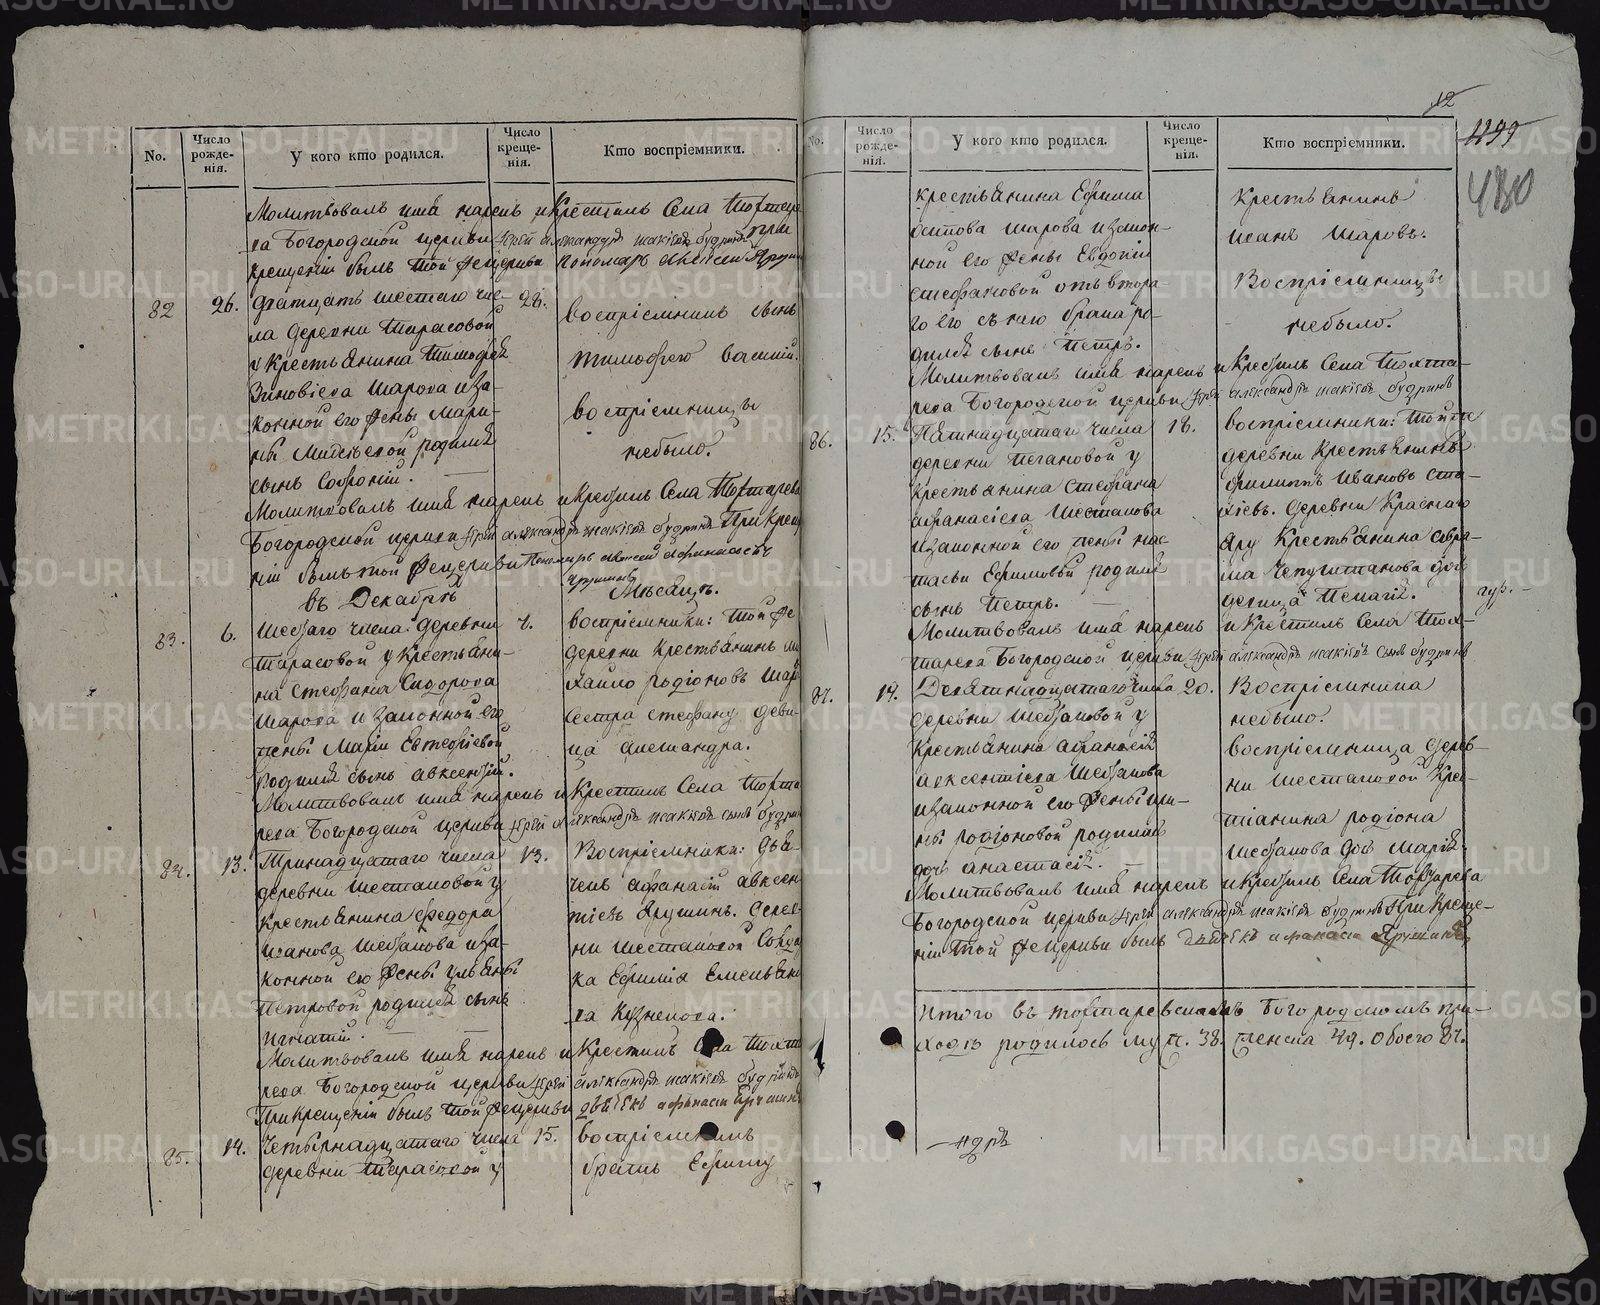 No.
Число рожде-нія.
У кого кто родился.
Число креще-нія.
Кто воспріемники.
Молитвовалъ имя нарекъ и Крестилъ Села Тохтаре
ва Богородской церкви Іерей александръ Іакіевъ Будринъ при
крещеніи былъ той же церкви пономарь алексей
82
26.
дватцать шестаго чис-
ла деревни Тарасовой
у Крестьянина Тимофея
Зиновіева Шарова и за-
конной его жены Мари-
ны родился
сынъ Софроній.
28.
воспріемникъ сынъ
тимофею василій.
воспріемницы
небыло.
Молитвовалъ имя нарекъ и Крестилъ Села Тохтарева
Богородской церкви Іерей александръ Іакіевъ Будринъ При Крещ
ніи былъ той же церкви Пономарь алексей афанасьевъ
Ярушинъ
въ Декабрѣ
Мѣсяцѣ.
83.
6.
Шестаго числа: деревни
Тарасовой у Крестьяни-
на Стефана Сидорова
Шарова и законной его
жены Маріи Евтефіевой
родился сынъ авксентій.
7.
воспріемники: той же
деревни Крестьянинъ ми
хайло родіоновъ Шаро
сестра стефану деви-
ца александра.
Молитвовалъ имя нарекъ и Крестилъ Села Тохта
рева Богородской церкви Іерей александръ Іакіевъ сынъ Будрин
84.
13.
Тринадцатаго числа
деревни Шестаковой у
Крестьянина Федора
Иванова Шестакова и за-
конной его жены ульяны
Петровой родился сынъ
игнатій.
13.
Воспріемники: дья-
чекъ афанасій авксен
тіевъ Ярушинъ. дерев-
ни Шестаковой
ка Ефимія Емельяно
ва Кузнецова.
Молитвовалъ имя нарекъ и Крестилъ Села Тохта
рева Богородской церкви Іерей александръ Іакіевъ Будринъ
При крещеніи былъ той же церкви дьячекъ афанасій Ярушинъ
85.
14.
Четырнадцатаго числа
деревни Тарасовой у
15.
воспріемникъ
братъ Ефиму
12
1199
480
No.
Число рожде-нія.
У кого кто родился.
Число креще-нія.
Кто воспріемники.
крестьянина Ефима
Титова Шарова и закон-
ной его жены Евдокіи
стефановой отъ втора-
го его съ нею брака ро-
дился сынъ Петръ.
Крестьянинъ
иванъ Шаровъ.
Воспріемницы
небыло.
Молитвовалъ имя нарекъ и Крестилъ Села Тохта-
рева Богородской церкви Іерей александръ Іакіевъ Будринъ
86.
15.
Пятинадцатаго числа
деревни Пегановой у
крестьянина Стефана
афанасіева Шестакова
и законной его жены нас-
тасьи Ефимовой родился
сынъ Петръ.
18.
воспріемники: той же
деревни Крестьянинъ
филипъ Ивановъ
деревни Краснаго
Яру Крестьянина абра-
ма Чепуштанова доч
девица Пелагія.
Молитвовалъ имя нарекъ и Крестилъ Села Тох-
тарева Богородской церкви Іерей александръ Іакіевъ сынъ Будринъ
87.
19.
Девятинадцатаго числа
деревни Шестаковой у
Крестьянина афанасія
авксентіева Шестакова
и законной его жены ири-
ны родіоновой родилась
дочь анастасія.
20.
Воспріемника
небыло.
воспріемница дерев-
ни Шестаковой Крес-
тіанина родіона
Шестакова дочь марія.
Молитвовалъ имя нарекъ и Крестилъ села Тохтарева
Богородской церкви Іерей александръ Іакіевъ Будринъ При Креще-
ніи той же церкви былъ дьячекъ афанасій Ярушинъ
Итого въ тохтаревскомъ Богородскомъ при-
ходѣ родилось муж. 38. женска 49. обоего 87.